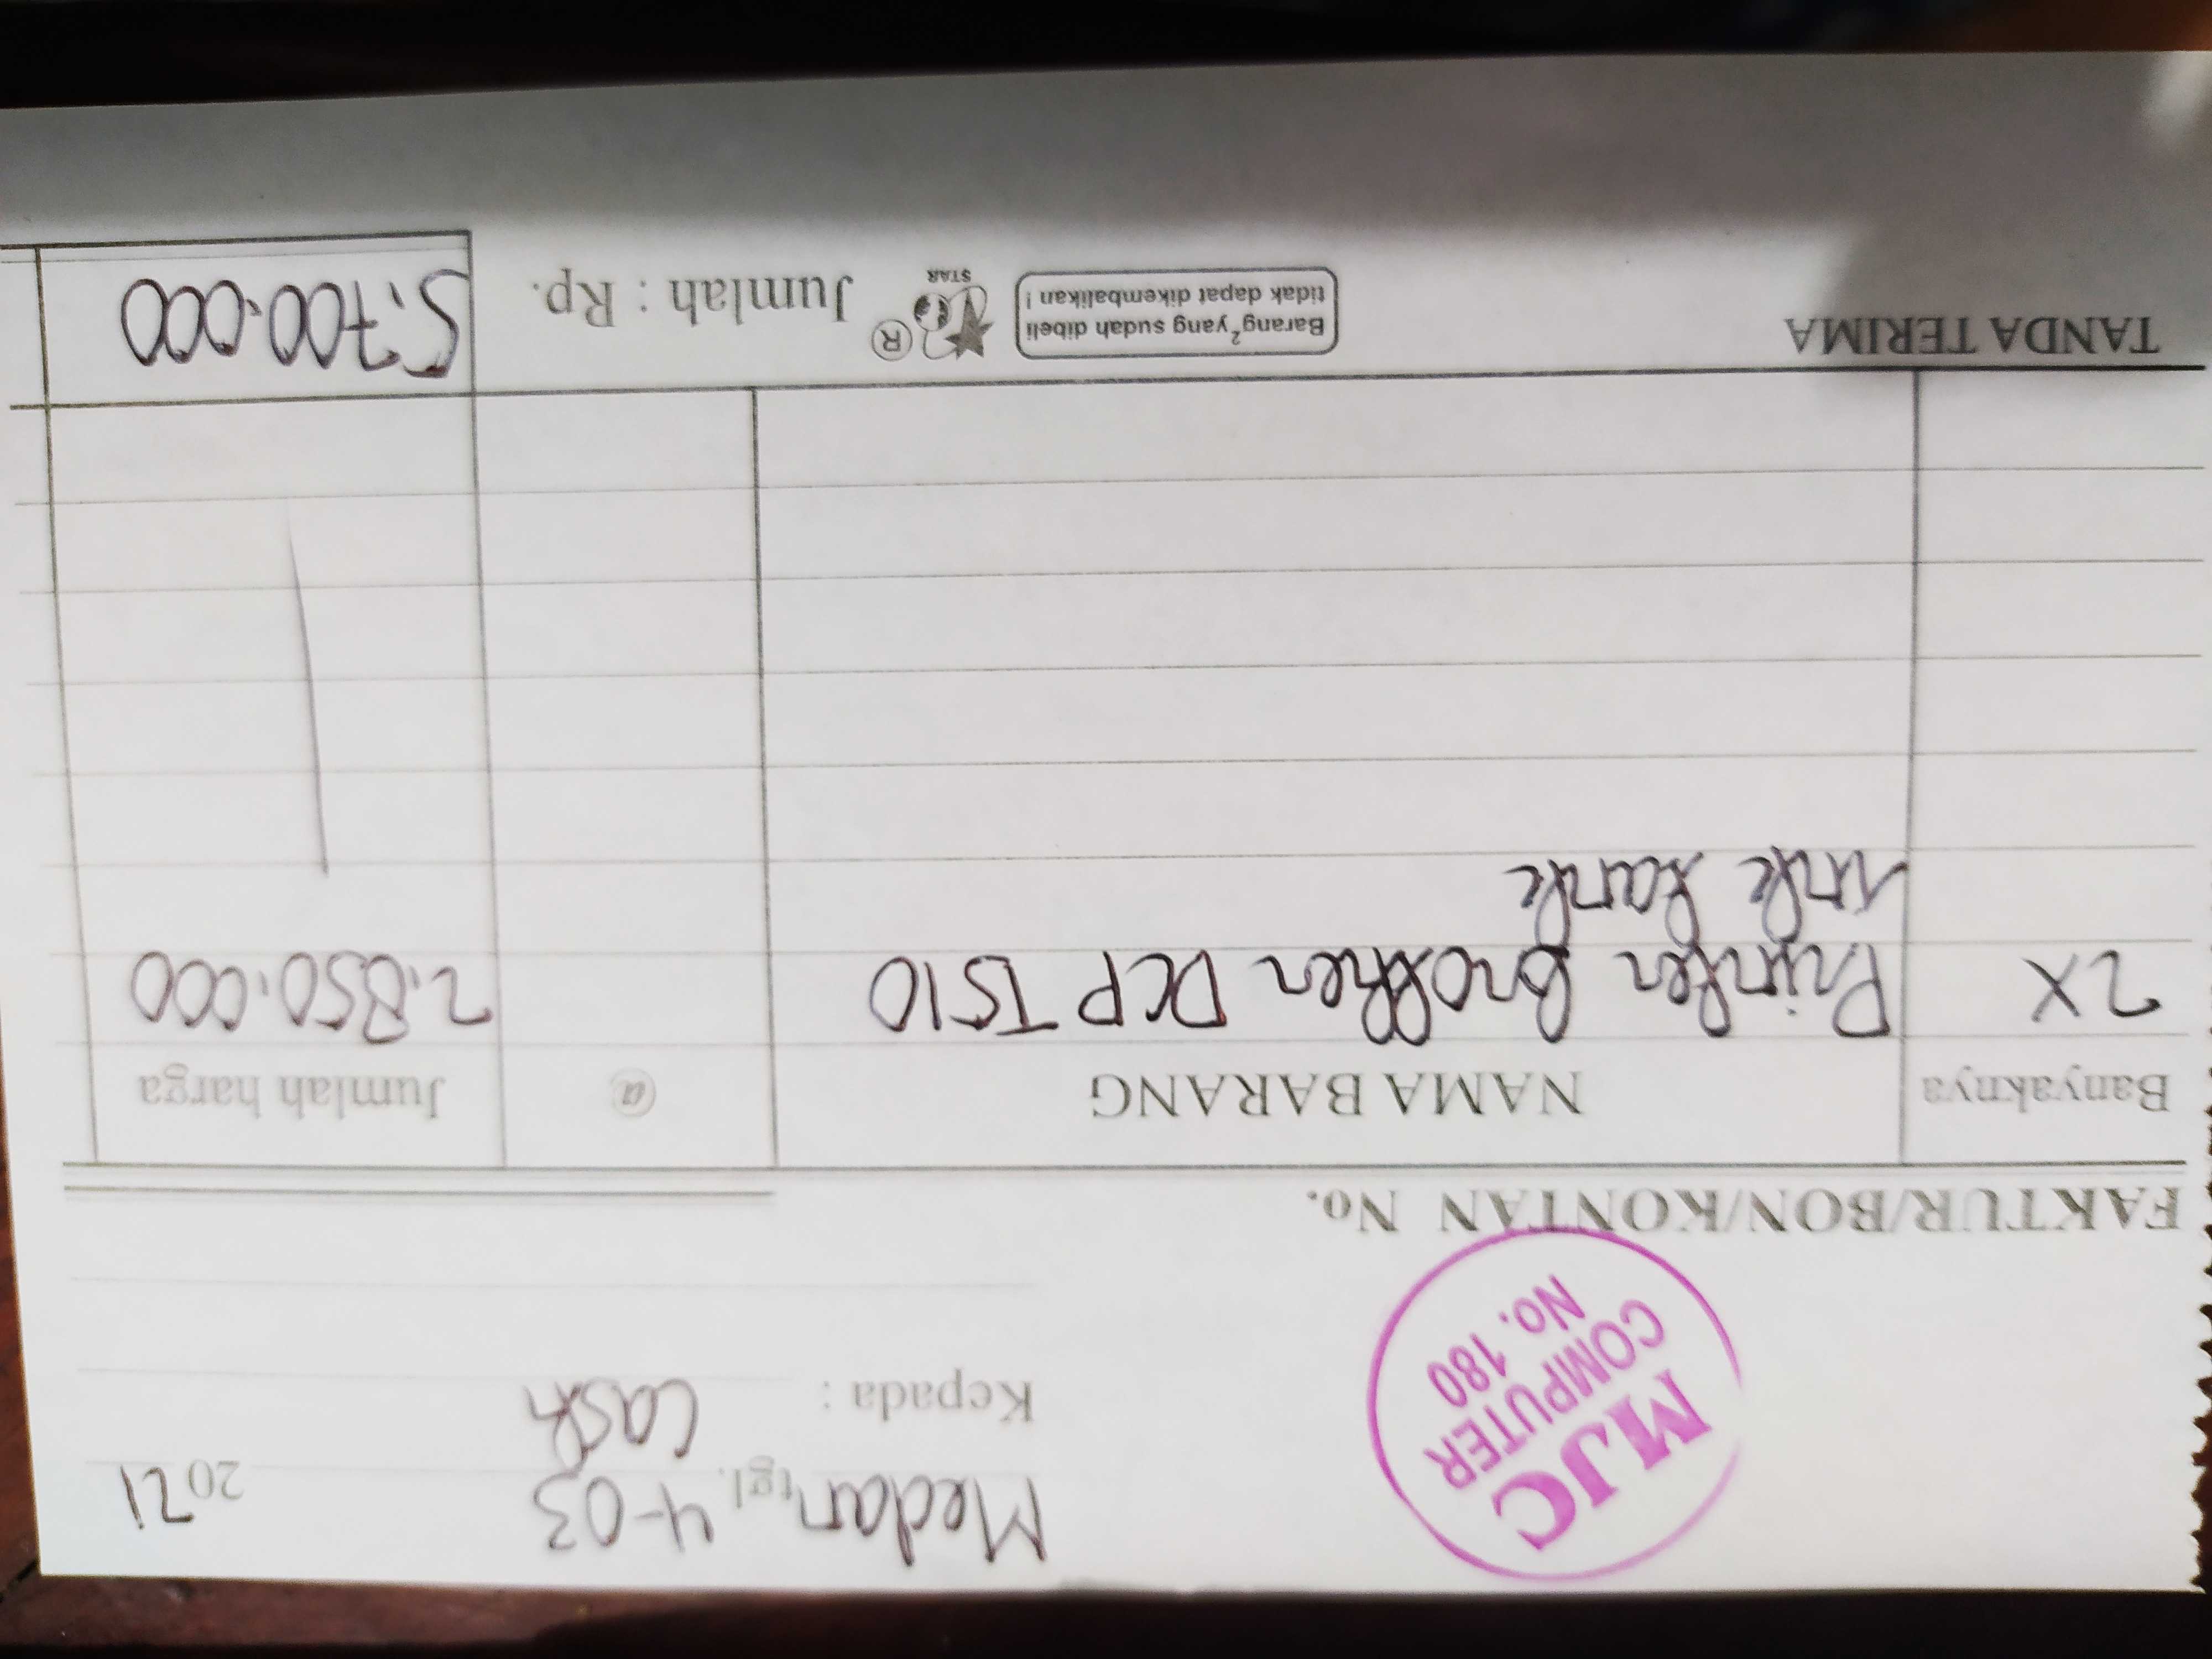 MJC
COMPUTER
No. 180
Medan, tgl. 4-03 2021
Kepada : Cash
FAKTUR/BON/KONTAN No.
Banyaknya NAMA BARANG @ Jumlah harga
2X Printer Brother DCP T510 2.850.000
ink tank
TANDA TERIMA
Barang² yang sudah dibeli
tidak dapat dikembalikan !
® STAR
Jumlah : Rp. 5.700.000